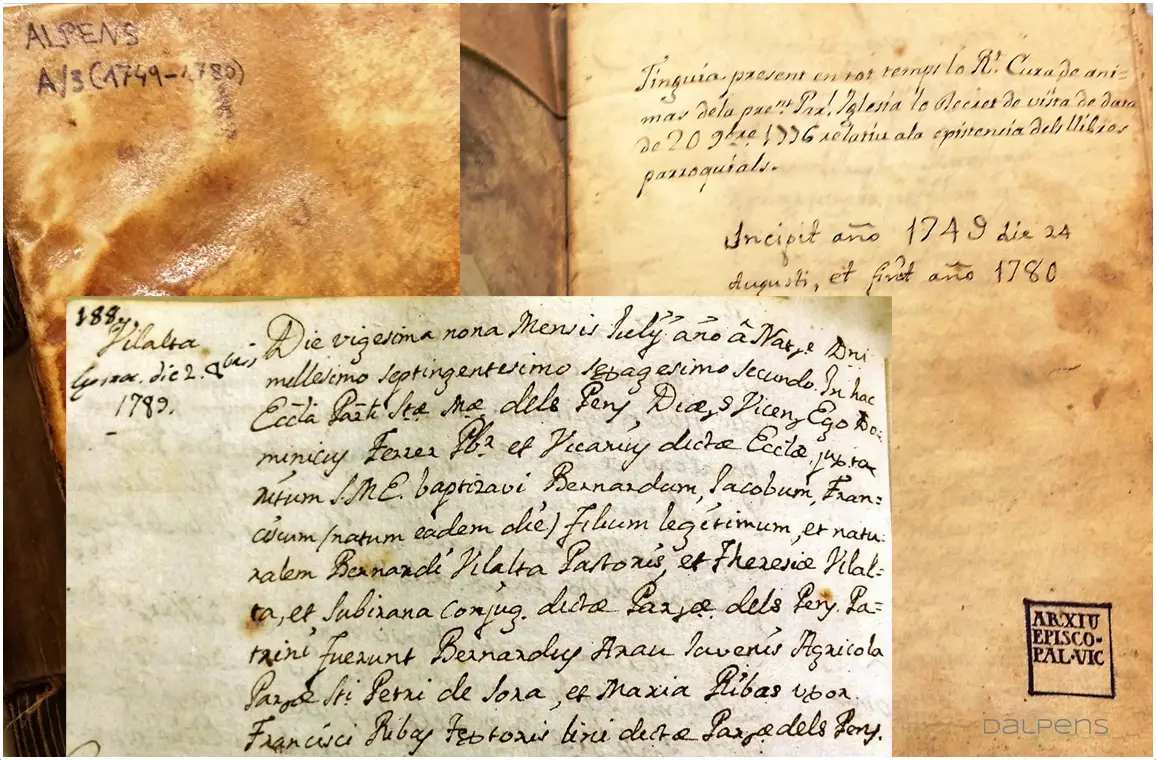 ALPENS
A/3 (1749-1780)
Tinguia present en tot temps lo Rt. Cura de ani=
mas de la prent. Parl. Iglesia lo Decret de vista de data
de 20 9bre 1776 relatiu a la existencia dels llibres
parroquials.
Incipit año 1749 die 24
Augusti, et finit año 1780
188.
Vilalta
die 2.
1789.
Die vigesima nona Mensis Julÿ año â Nat.e Dni
millesimo septingentesimo septuagesimo secundo. In hac
Eccla Parli Stæ Mæ dels Pens Diœs Vicen, Ego Do=
minicus Ferrer Pbr et Vicarius dictæ Ecclæ juxta
ritum S.M.E. baptizavi Bernardum, Jacobum, Fran=
ciscum (natum eadem die) filium legitimum, et natu=
ralem Bernardi Vilalta Pastoris, et Theresiæ Vilal=
ta, et Subirana conjug. dictæ Parœ dels Pens. Pa=
trini fuerunt Bernardus Arau Juvenis Agricola
Parœ Sti Petri de Sora, et Maria Ribas uxor
Francisci Ribas Textoris lini dictæ Parœ dels Pens.
ARXIU
EPISCO-
PAL·VIC
DALPENS